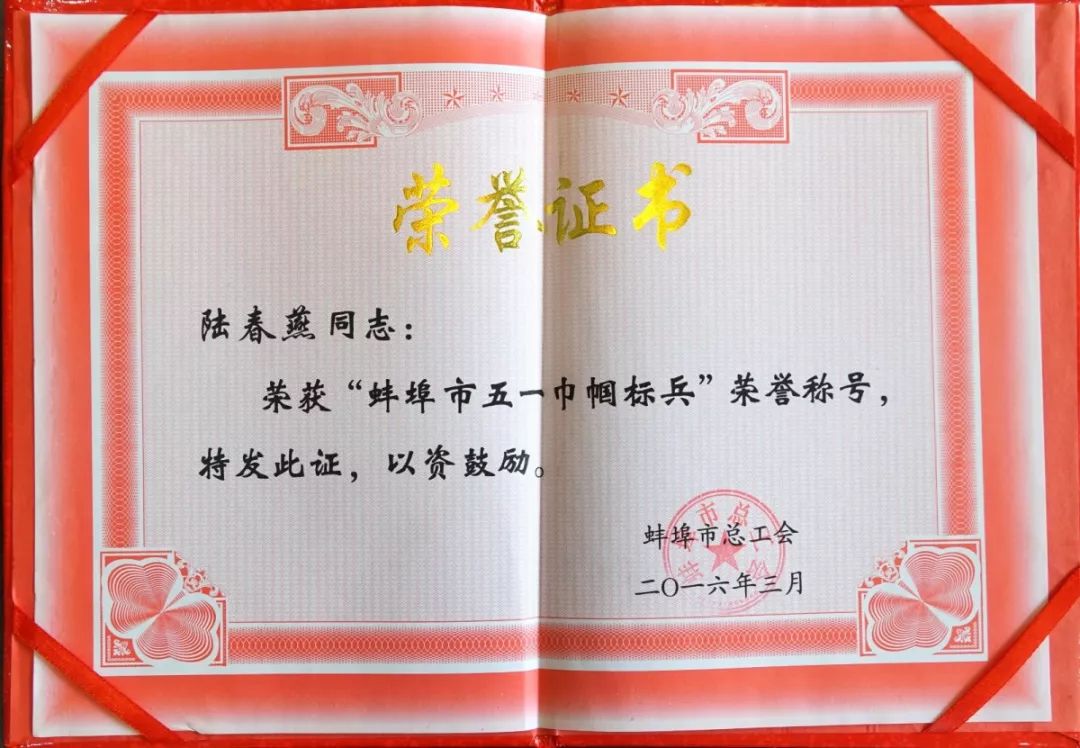 荣誉证书
陆春燕同志：
荣获“蚌埠市五一巾帼标兵”荣誉称号，
特发此证，以资鼓励。
蚌埠市总工会
二〇一六年三月
蚌埠市总工会